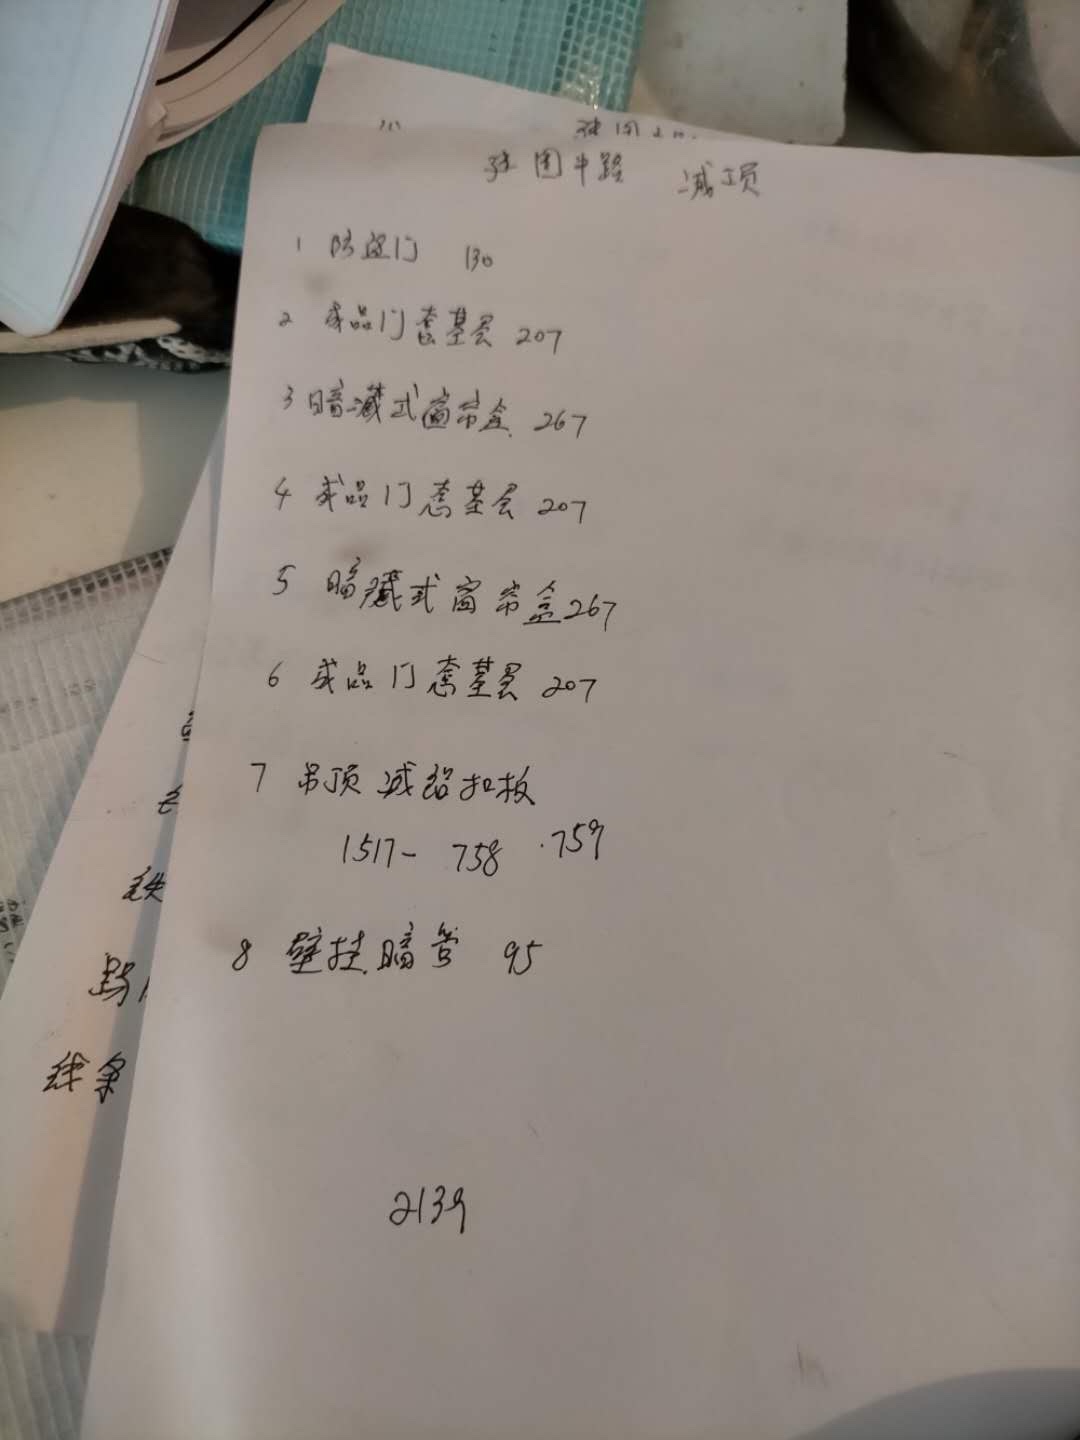 减项
1 防盗门 130
2 成品门套基层 207
3 暗藏式窗帘盒 267
4 成品门套基层 207
5 暗藏式窗帘盒 267
6 成品门套基层 207
7 吊顶 减铝扣板
1517- 758 .759
8 壁挂暗管 95
线条
2139